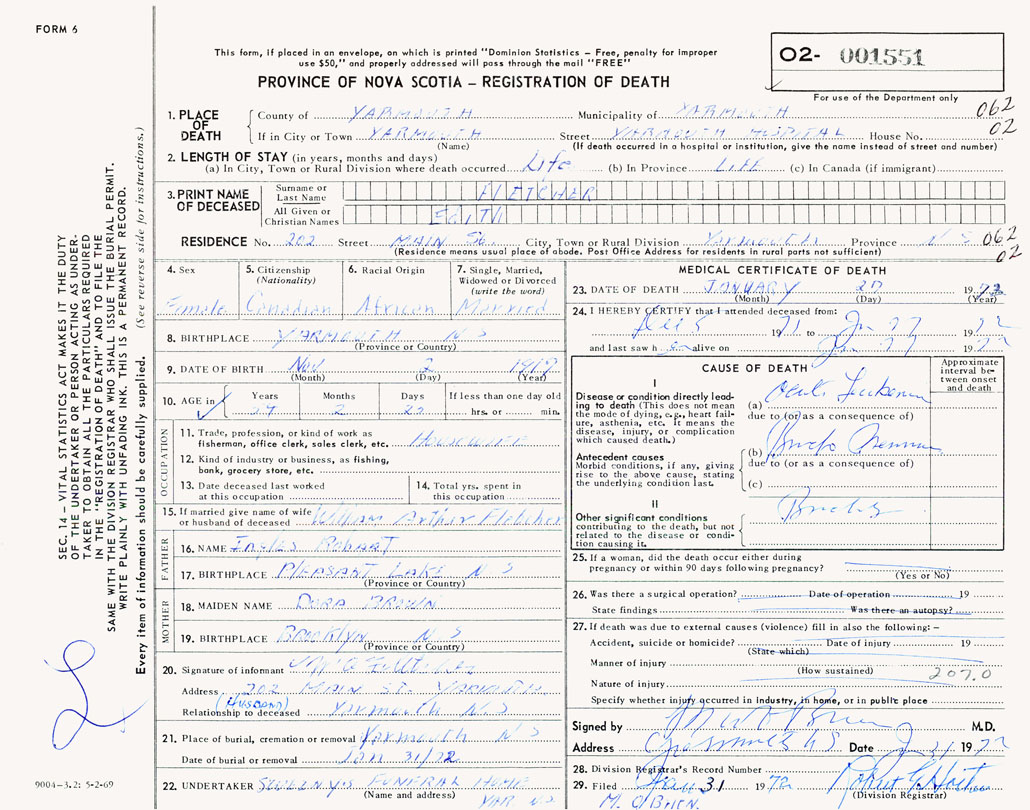 FORM 6
This form, if placed in an envelope, on which is printed "Dominion Statistics – Free, penalty for improper
use $50," and properly addressed will pass through the mail "FREE"
PROVINCE OF NOVA SCOTIA – REGISTRATION OF DEATH
02- 001551
For use of the Department only
062
02
1. PLACE OF DEATH
County of YARMOUTH Municipality of YARMOUTH
If in City or Town YARMOUTH Street YARMOUTH HOSPITAL House No.
(Name) (If death occurred in a hospital or institution, give the name instead of street and number)
2. LENGTH OF STAY (in years, months and days)
(a) In City, Town or Rural Division where death occurred Life (b) In Province LIFE (c) In Canada (if immigrant)
3. PRINT NAME OF DECEASED
Surname or Last Name FLETCHER
All Given or Christian Names EDITH
RESIDENCE No. 202 Street MAIN St. City, Town or Rural Division Yarmouth Province N S
062
02
(Residence means usual place of abode. Post Office Address for residents in rural parts not sufficient)
4. Sex
Female
5. Citizenship
(Nationality)
Canadian
6. Racial Origin
African
7. Single, Married,
Widowed or Divorced
(write the word)
Married
8. BIRTHPLACE YARMOUTH N S
(Province or Country)
9. DATE OF BIRTH Nov 2 1917
(Month) (Day) (Year)
10. AGE in
Years Months Days If less than one day old
54 2 25 hrs. or min.
OCCUPATION
11. Trade, profession, or kind of work as
fisherman, office clerk, sales clerk, etc. Housewife
12. Kind of industry or business, as fishing,
bank, grocery store, etc.
13. Date deceased last worked
at this occupation
14. Total yrs. spent in
this occupation
15. If married give name of wife
or husband of deceased William Arthur Fletcher
FATHER
16. NAME Ingles Robart
17. BIRTHPLACE PLEASANT LAKE N S
(Province or Country)
MOTHER
18. MAIDEN NAME DORA BROWN
19. BIRTHPLACE BROOKLYN N S
(Province or Country)
20. Signature of informant
Address 202 MAIN ST. YARMOUTH
(HUSBAND)
Relationship to deceased Yarmouth N S
21. Place of burial, cremation or removal Yarmouth N S
Date of burial or removal JAN 31/72
22. UNDERTAKER SWEENY'S FUNERAL HOME
(Name and address) YAR N.S
MEDICAL CERTIFICATE OF DEATH
23. DATE OF DEATH JANUARY 27 1972
(Month) (Day) (Year)
24. I HEREBY CERTIFY that I attended deceased from:
1971 to Jan 27 1972
and last saw h er alive on Jan 27 1972
CAUSE OF DEATH
Approximate
interval be-
tween onset
and death
I
Disease or condition directly lead-
ing to death (This does not mean
the mode of dying, e.g., heart fail-
ure, asthenia, etc. It means the
disease, injury, or complication
which caused death.)
(a) Acute Leukemia
due to (or as a consequence of)
Antecedent causes
Morbid conditions, if any, giving
rise to the above cause, stating
the underlying condition last.
(b)
due to (or as a consequence of)
(c)
II
Other significant conditions
contributing to the death, but not
related to the disease or condi-
tion causing it.
25. If a woman, did the death occur either during
pregnancy or within 90 days following pregnancy?
(Yes or No)
26. Was there a surgical operation? Date of operation 19
State findings Was there an autopsy?
27. If death was due to external causes (violence) fill in also the following: –
Accident, suicide or homicide? Date of injury 19
(State which)
Manner of injury
(How sustained)
207.0
Nature of injury
Specify whether injury occurred in industry, in home, or in public place
Signed by M.D.
Address N.S. Date 1972
28. Division Registrar's Record Number
29. Filed Jan 31 1972
(Division Registrar)
M. O'BRIEN.
SEC. 14 – VITAL STATISTICS ACT MAKES IT THE DUTY
OF THE UNDERTAKER OR PERSON ACTING AS UNDER-
TAKER TO OBTAIN ALL THE PARTICULARS REQUIRED
IN THE "REGISTRATION OF DEATH" AND TO FILE THE
SAME WITH THE DIVISION REGISTRAR WHO SHALL ISSUE THE BURIAL PERMIT.
WRITE PLAINLY WITH UNFADING INK. THIS IS A PERMANENT RECORD.
Every item of information should be carefully supplied. (See reverse side for instructions.)
9004-3.2: 5-2-69